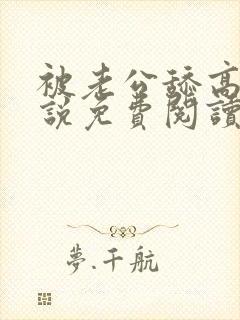 被老公舔高
說免費閱讀
夢.千航